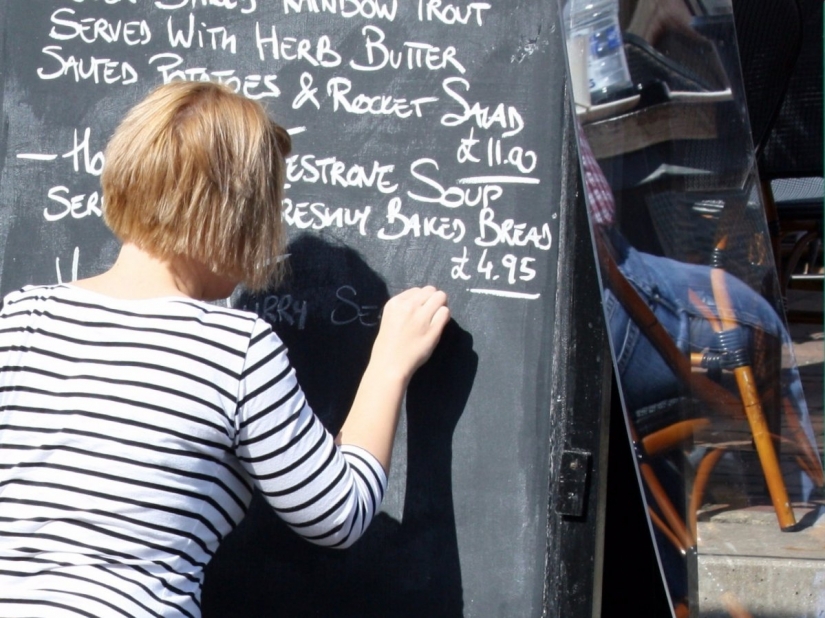 RAINBOW TROUT
SERVED WITH HERB BUTTER
SAUTED POTATOES & ROCKET SALAD
£11.00
— HO ESTRONE SOUP
SER RESHLY BAKED BREAD
£4.95
URRY SE